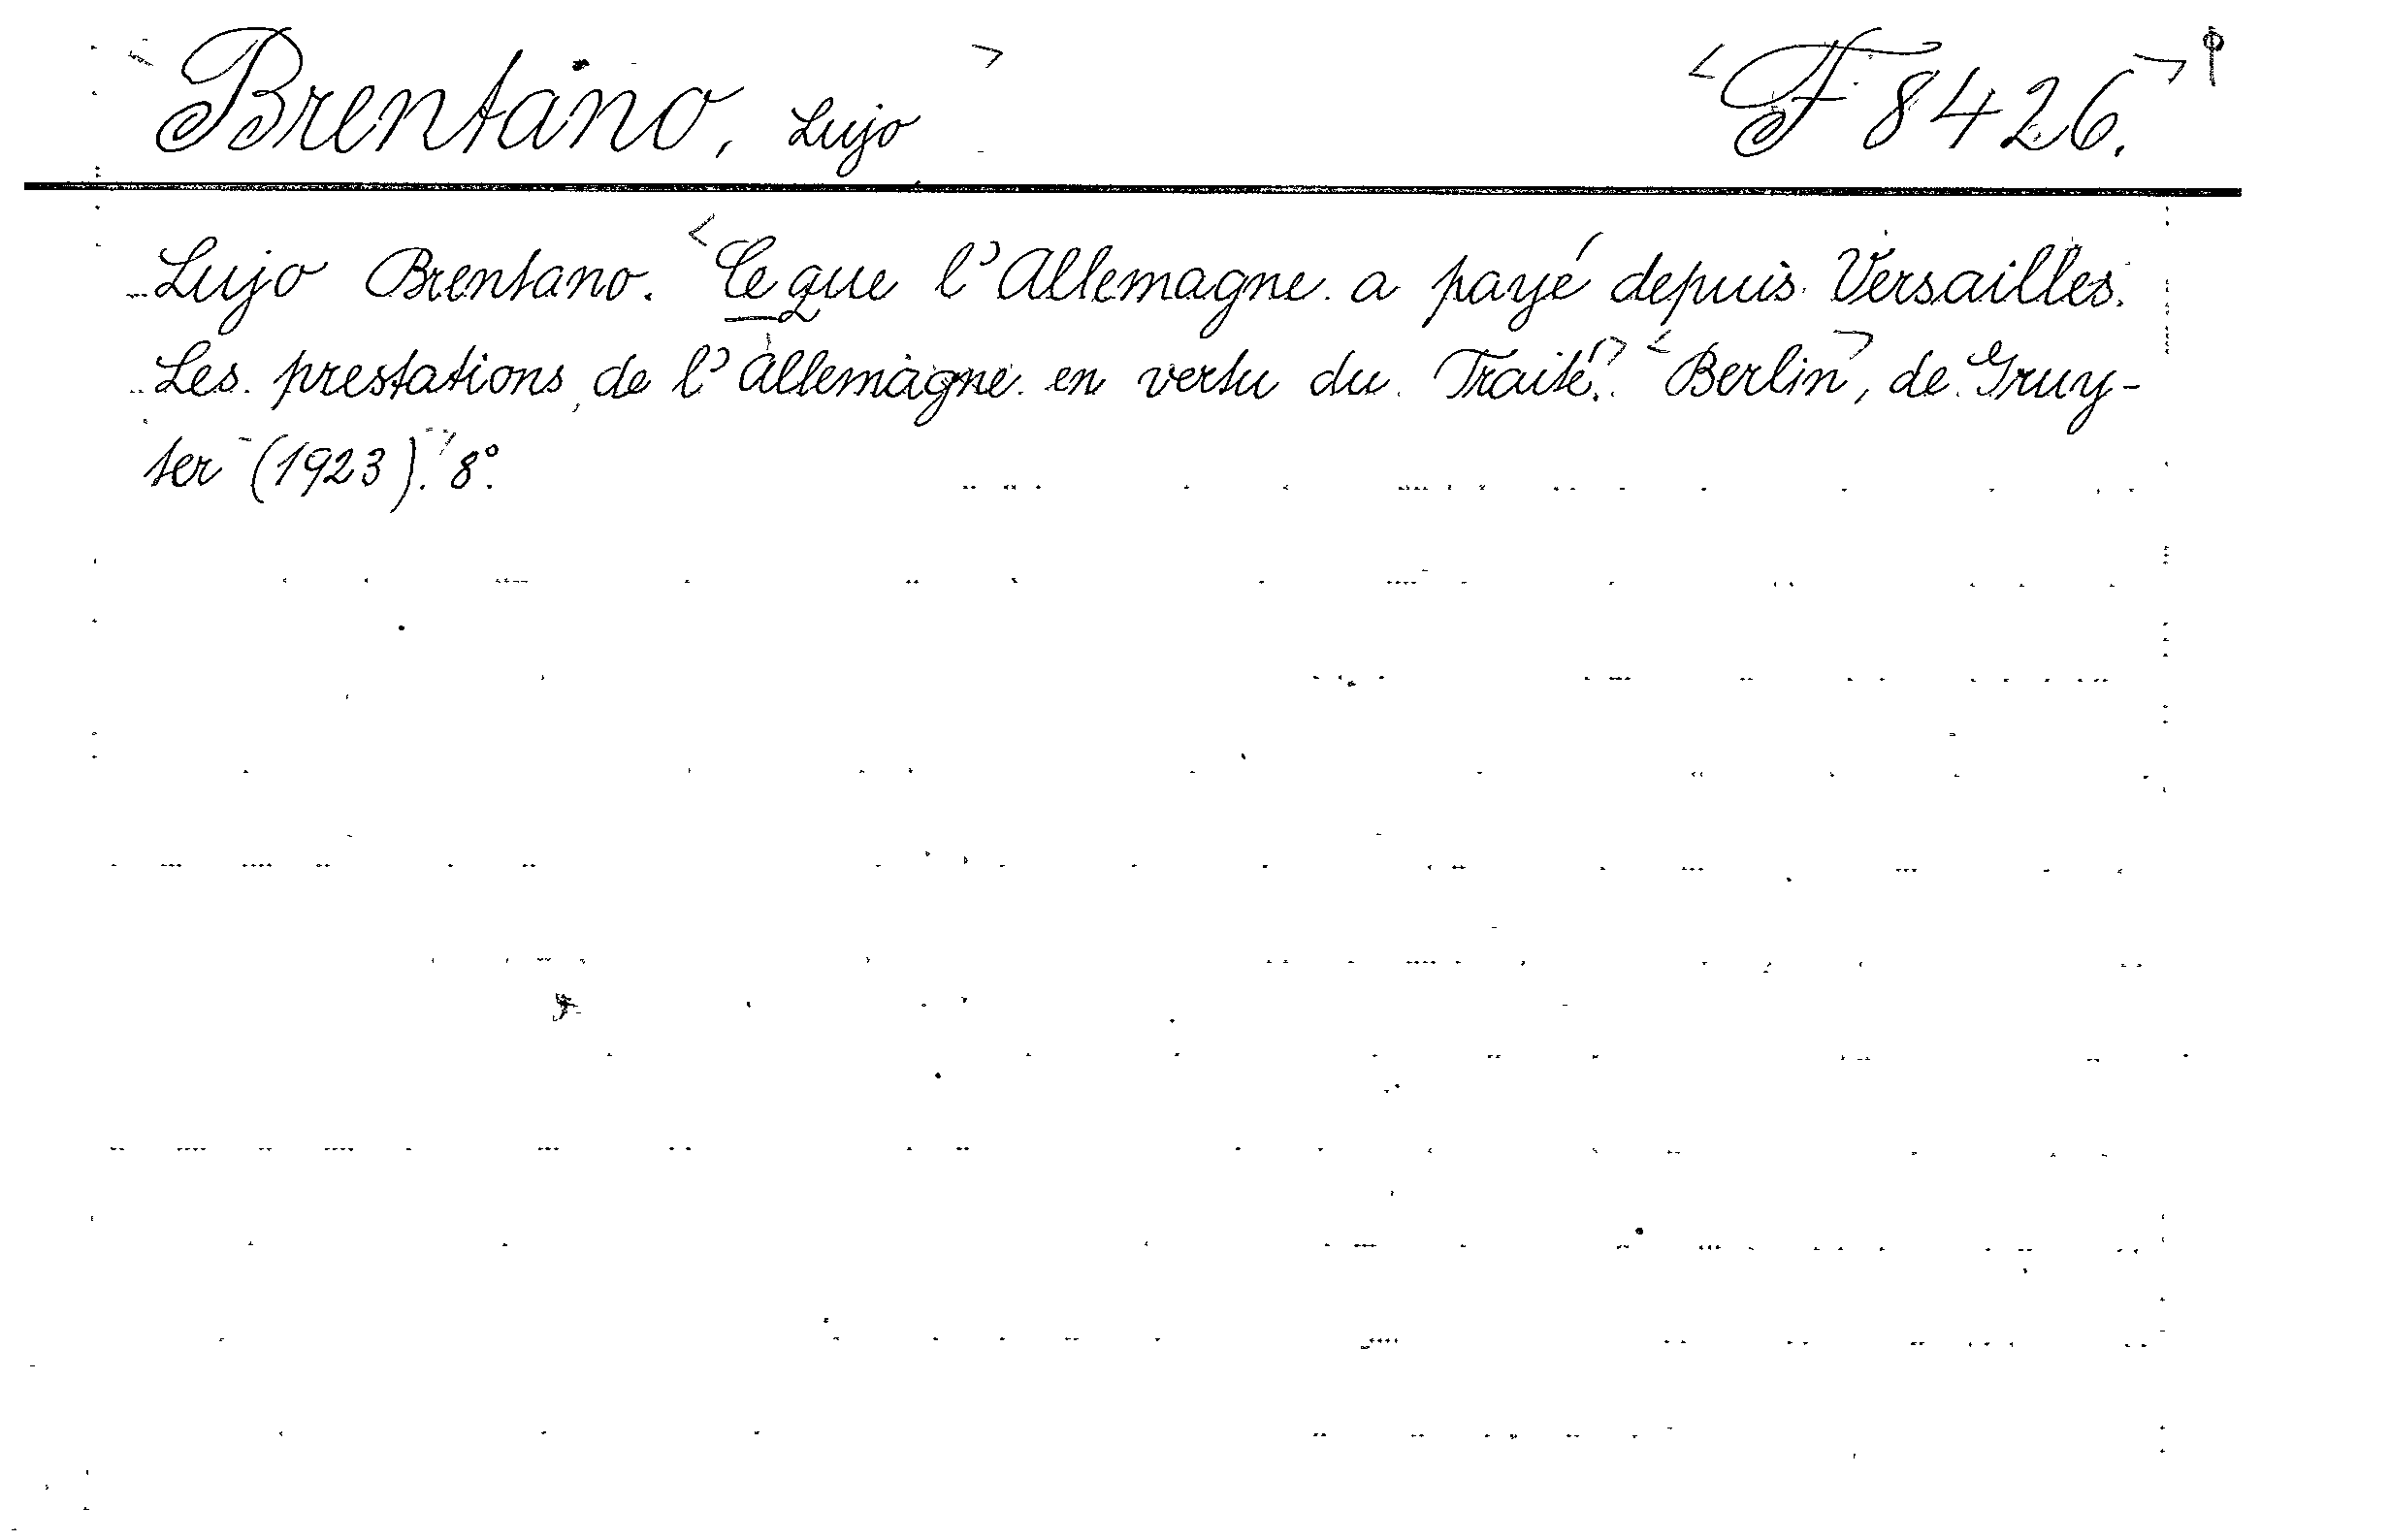 Brentano, Lujo F 8426.
Lujo Brentano. Ce que l'Allemagne a payé depuis Versailles.
Les prestations de l'allemagne en vertu du Traité. Berlin, de Gruy-
ter (1923). 8°.